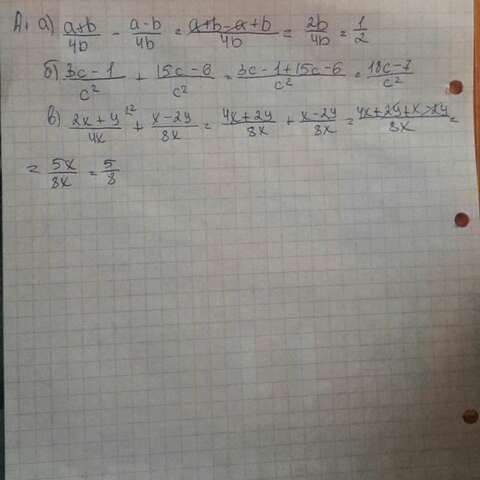 А1 а) (a+b)/4b - (a-b)/4b = (a+b-a+b)/4b = 2b/4b = 1/2
б) (3c-1)/c² + (15c-6)/c² = (3c-1+15c-6)/c² = (18c-7)/c²
в) (2x+y)/4x ^{\2} + (x-2y)/8x = (4x+2y)/8x + (x-2y)/8x = (4x+2y+x-2y)/8x =
= 5x/8x = 5/8